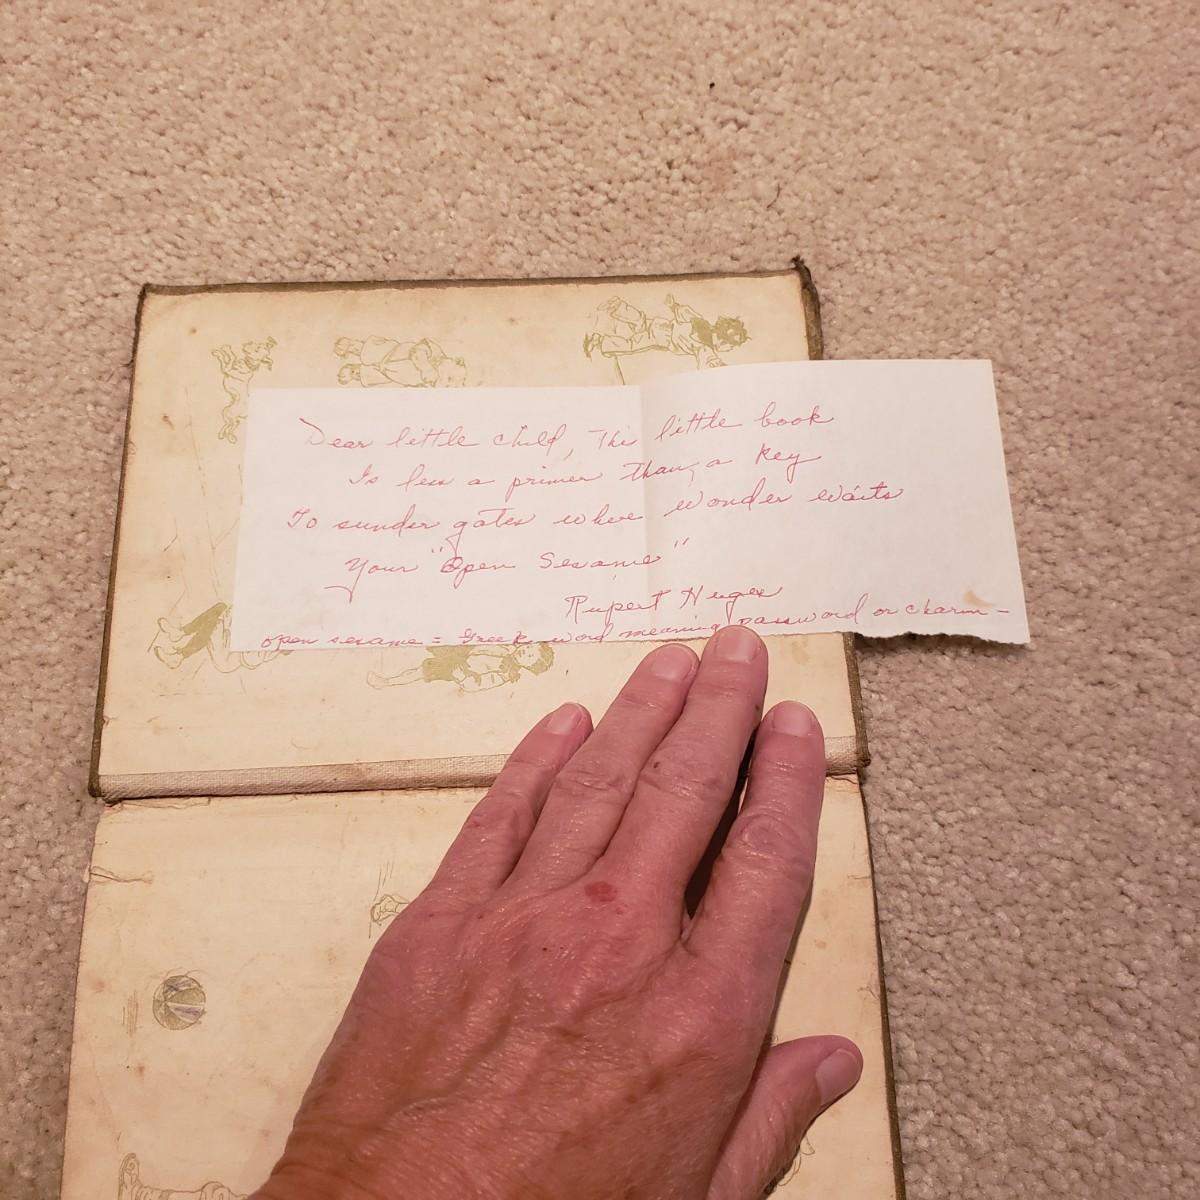 Dear little child, This little book
Is less a primer than a key
To sunder gates where wonder waits
Your "Open Sesame"
Rupert Huges
open sesame = Greek word meaning password or charm -